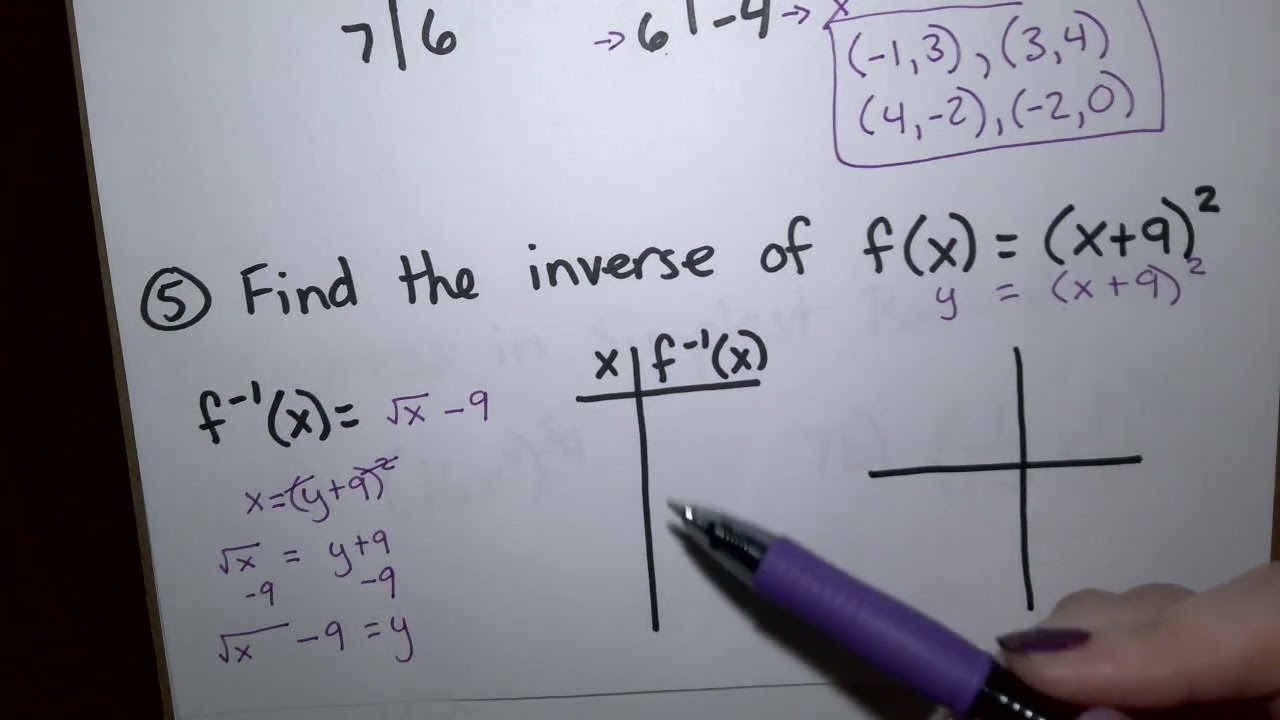 7 | 6
→ 6 | -4 → x
(-1,3), (3,4)
(4,-2), (-2,0)
⑤ Find the inverse of f(x) = (x+9)²
y = (x+9)²
f⁻¹(x) = √x - 9
x = (y+9)²
√x = y+9
-9 -9
√x - 9 = y
x | f⁻¹(x)